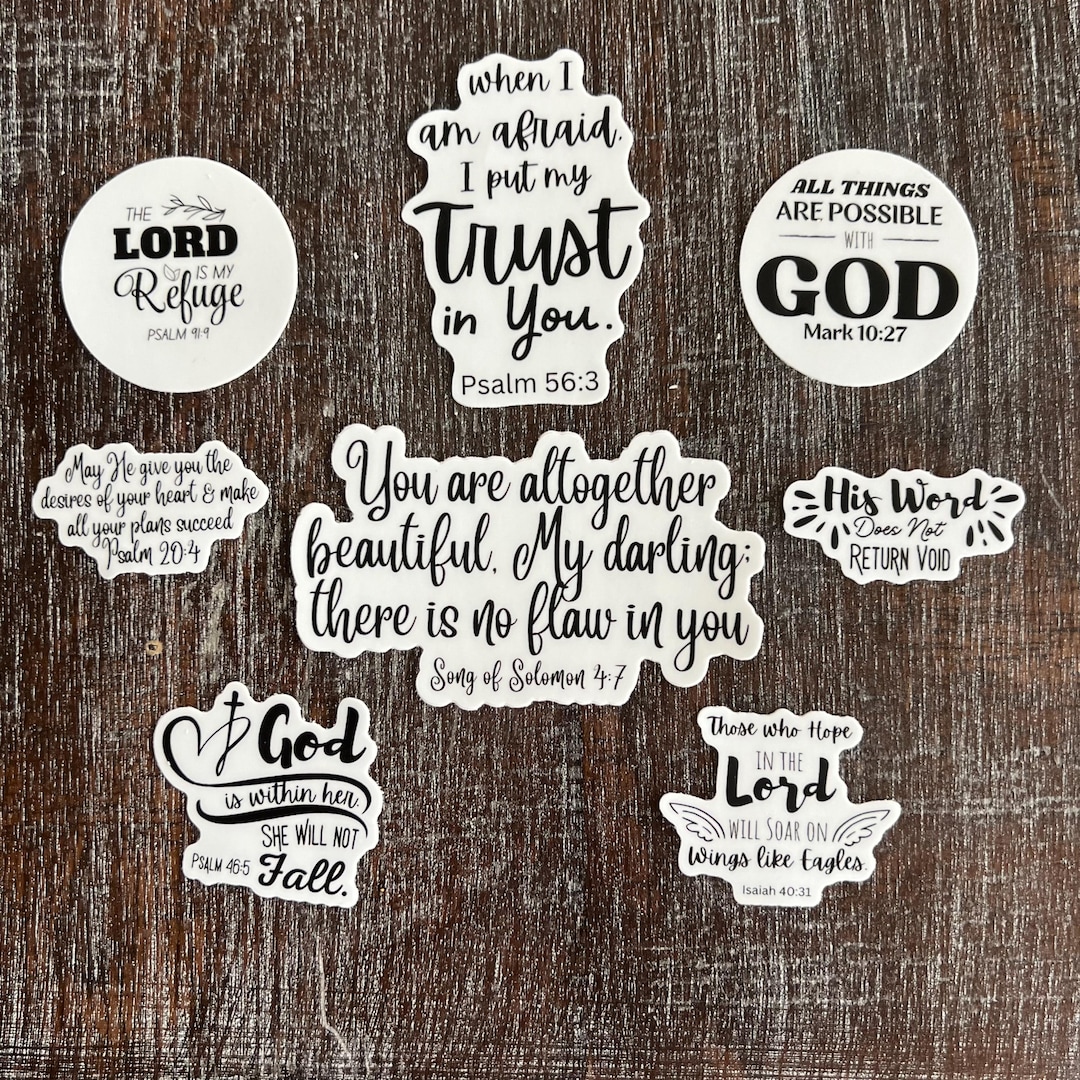 when I
am afraid,
I put my
Trust
in You.
Psalm 56:3
THE
LORD
IS MY
Refuge
PSALM 91:9
ALL THINGS
ARE POSSIBLE
WITH
GOD
Mark 10:27
May He give you the
desires of your heart & make
all your plans succeed
Psalm 20:4
You are altogether
beautiful, My darling;
there is no flaw in you
Song of Solomon 4:7
His Word
Does Not
RETURN VOID
God
is within her,
SHE WILL NOT
Fall.
PSALM 46:5
Those who Hope
IN THE
Lord
WILL SOAR ON
Wings like Eagles.
Isaiah 40:31